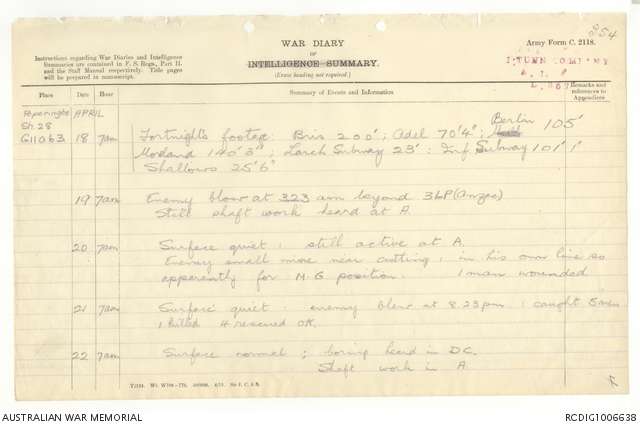 254
WAR DIARY
OF
INTELLIGENCE SUMMARY.
(Erase heading not required.)
Army Form C. 2118.
Instructions regarding War Diaries and Intelligence
Summaries are contained in F. S. Regs., Part II.
and the Staff Manual respectively. Title pages
will be prepared in manuscript.
Place Date Hour Summary of Events and Information Remarks and references to Appendices
Poperinghe APRIL
Sh. 28
G11063 18 7am Fortnight's footage: Bris 200'; Adel 70'4"; Berlin 105'
140'3"; Larch Subway 23': Inf. Subway 101'1"
Shallows 25'6"
19 7am Enemy blow at 323 am beyond 3LP (Anzac)
Still shaft work heard at A.
20 7am Surface quiet; still active at A.
Enemy small mine near cutting; in his own line so
apparently for M.G position. 1 man wounded
21 7am Surface quiet. enemy blew at 8.23pm; caught 5 men
1 killed 4 rescued OK.
22 7am Surface normal; boring heard in D.C.
Shaft work in A.
AUSTRALIAN WAR MEMORIAL
RCDIG1006638